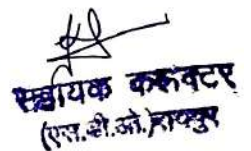 सहायक कलेक्टर
(एस.डी.ओ.) रायपुर